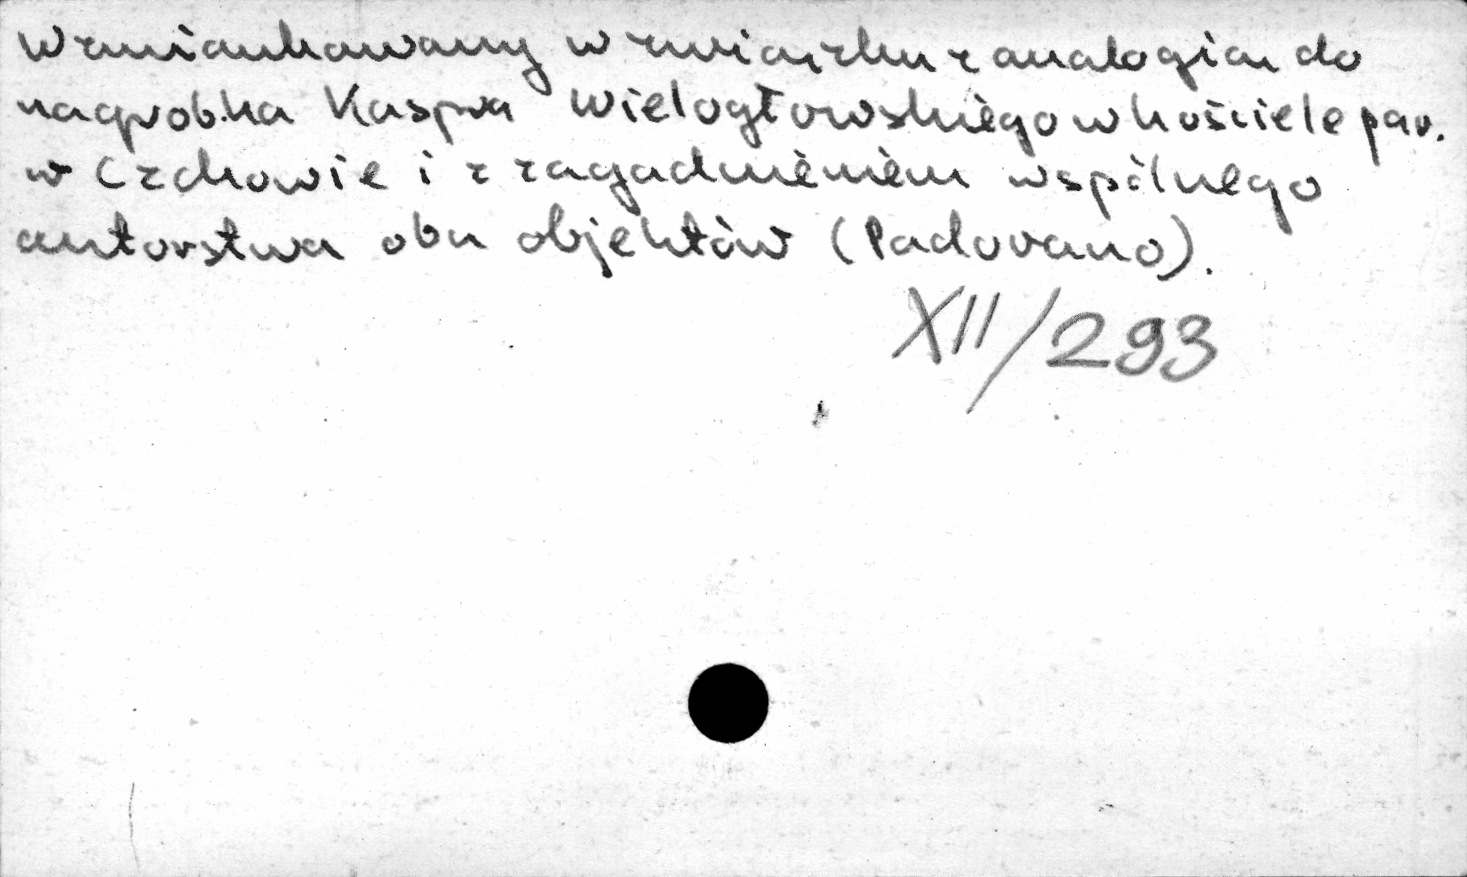 Wzmiankowany w związku z analogią do
nagrobka Kaspra Wielogłowskiego w kościele par.
w Czchowie i z zagadnieniem wspólnego
autorstwa obu objektów (Padovano).
XII/293